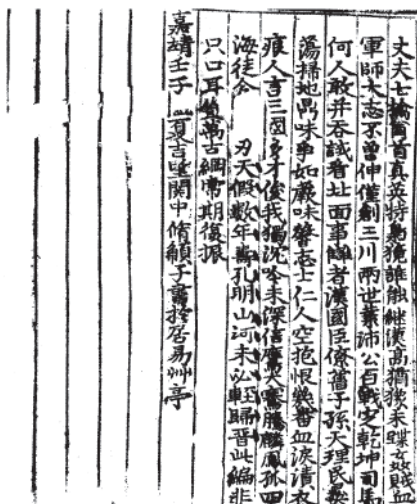 丈夫七擒酋首真英特勢㹫誰能繼漢高猶豫未蹀女賊血
軍師大志不曾伸僅創三川兩世業沛公百戰定乾坤司馬
何人敢并吞試看北面事讎者漢國臣僚舊子孫天理民彝
蕩掃地禺味事如嚴味聲志士仁人空抱恨幾番血淚漬衣
痕人言三國多才俊我獨沉吟未深信鷹犬騫騰麟鳳孤四
海徒分 刃天假數年壽孔明山河未必輕歸晉此編非
只口耳 萬古綱常期復振
嘉靖壬子 夏吉望關中脩髯子書於居易艸亭